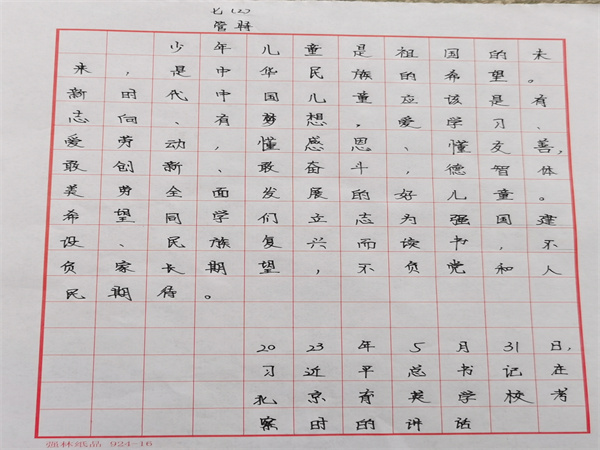 七(2)
管轩
少年儿童是祖国的未
来，是中华民族的希望。
新时代中国儿童应该是有
志向、有梦想，爱学习、
爱劳动，懂感恩、懂友善，
敢创新、敢奋斗，德智体
美劳全面发展的好儿童。
希望同学们立志为强国建
设、民族复兴而读书，不
负家长期望，不负党和人
民期待。
2023年5月31日，
习近平总书记在
北京育英学校考
察时的讲话
强林纸品 924-16